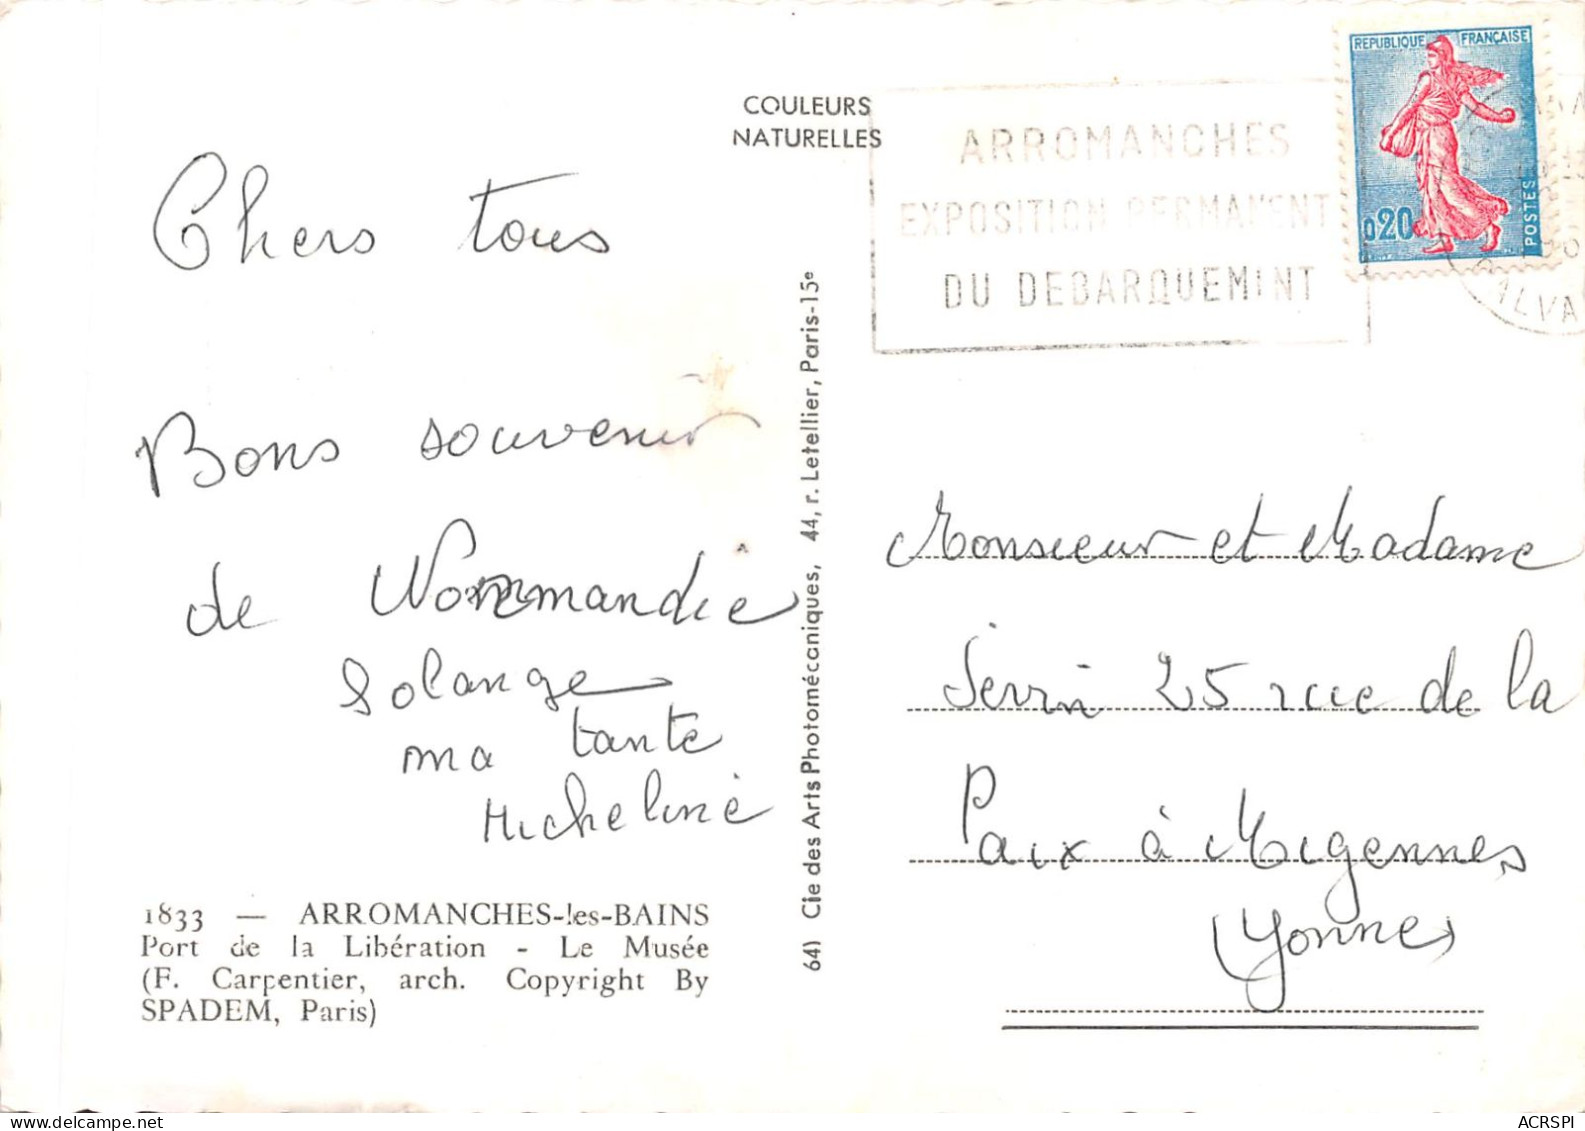 COULEURS
NATURELLES
ARROMANCHES
EXPOSITION PERMANENT
DU DEBARQUEMENT
REPUBLIQUE FRANÇAISE
0,20
POSTES
Chers tous
Bons souvenir
de Normandie
Solange
ma tante
Micheline
1833 — ARROMANCHES-les-BAINS
Port de la Libération - Le Musée
(F. Carpentier, arch. Copyright By
SPADEM, Paris)
641 Cie des Arts Photomécaniques, 44, r. Letellier, Paris-15e
Monsieur et Madame
Serrin 25 rue de la
Paix à Migennes
(Yonne)
www.delcampe.net
ACRSPI